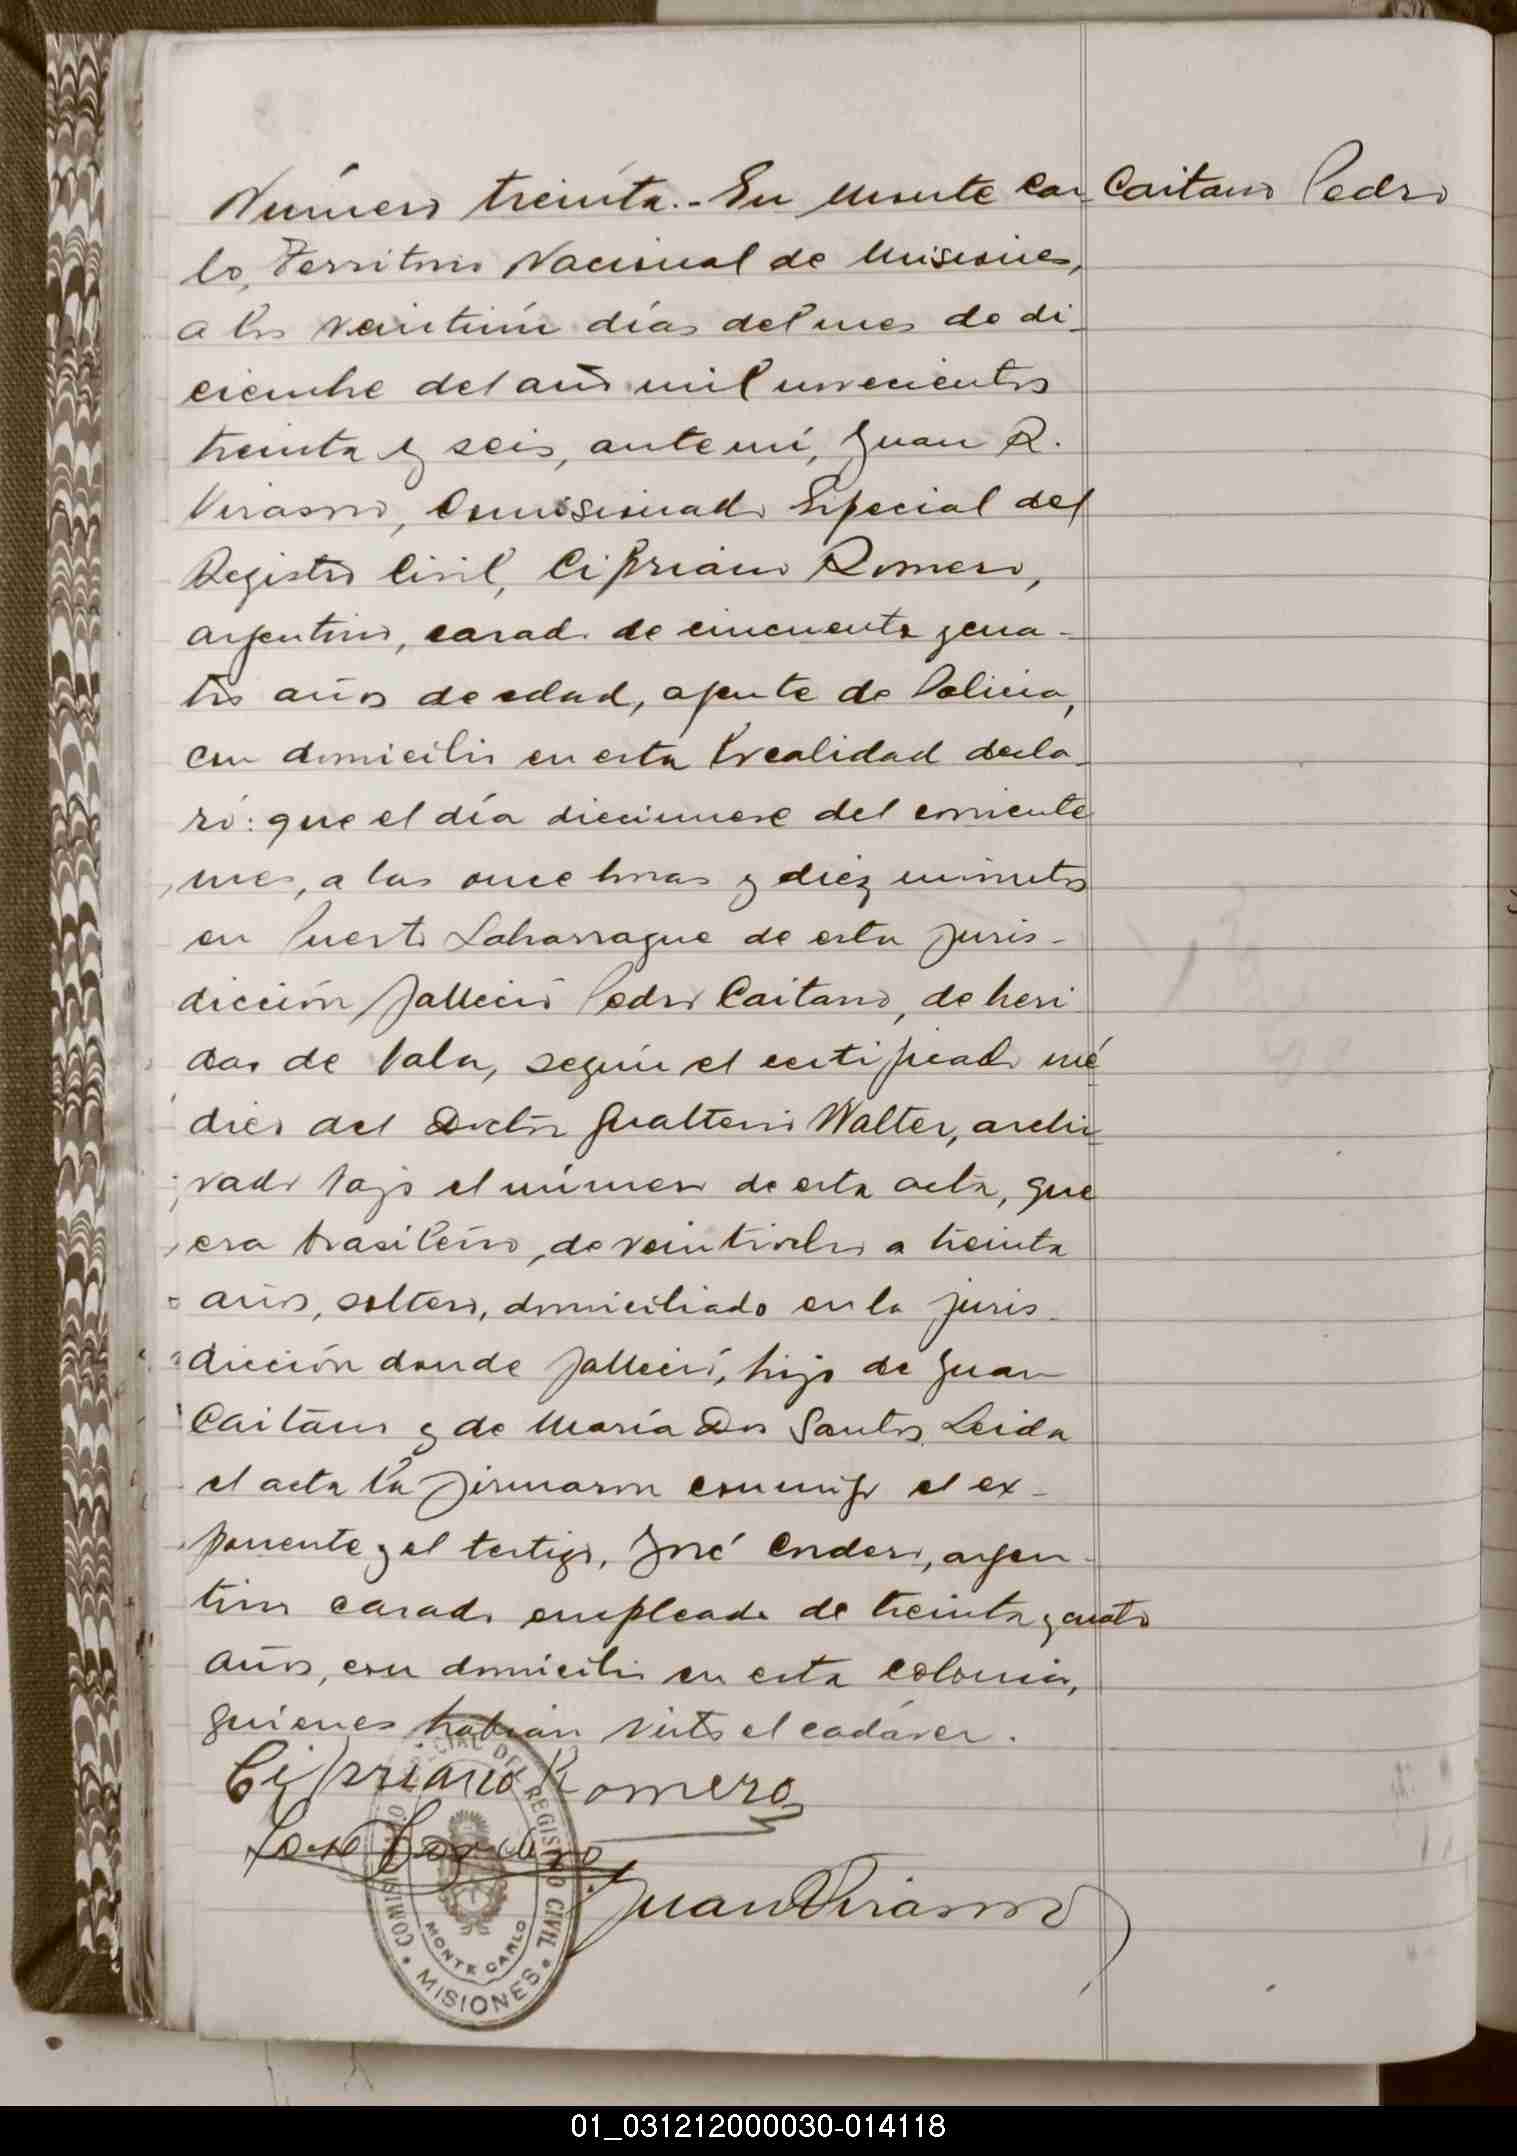 Número treinta.- En Monte Car- Caitano Pedro
lo, Territorio Nacional de Misiones,
a los veintiún días del mes de di-
ciembre del año mil novecientos
treinta y seis, ante mí, Juan R.
Virasoro, Comisionado Especial del
Registro Civil, Cipriano Romero,
argentino, casado de cincuenta y cua-
tro años de edad, agente de Policia,
con domicilio en esta localidad decla-
ró: que el día diecinueve del corriente
mes, a las once horas y diez minutos
en Puerto Laharrague de esta juris-
dicción falleció Pedro Caitano, de heri-
das de bala, según el certificado mé-
dico del Doctor Gualterio Walter, archi-
vado bajo el número de esta acta, que
era brasileño, de veintiocho a treinta
años, soltero, domiciliado en la juris-
dicción donde falleció, hijo de Juan
Caitano y de María Dos Santos. Leida
el acta la firmaron conmigo el ex-
ponente y el testigo, José Cordero, argen-
tino casado empleado de treinta y cuatro
años, con domicilio en esta colonia,
quienes habían visto el cadáver.
Cipriano Romero
José Cordero
Juan R Virasoro
COMISIONADO ESPECIAL DEL REGISTRO CIVIL
MONTE CARLO
MISIONES
01_031212000030-014118